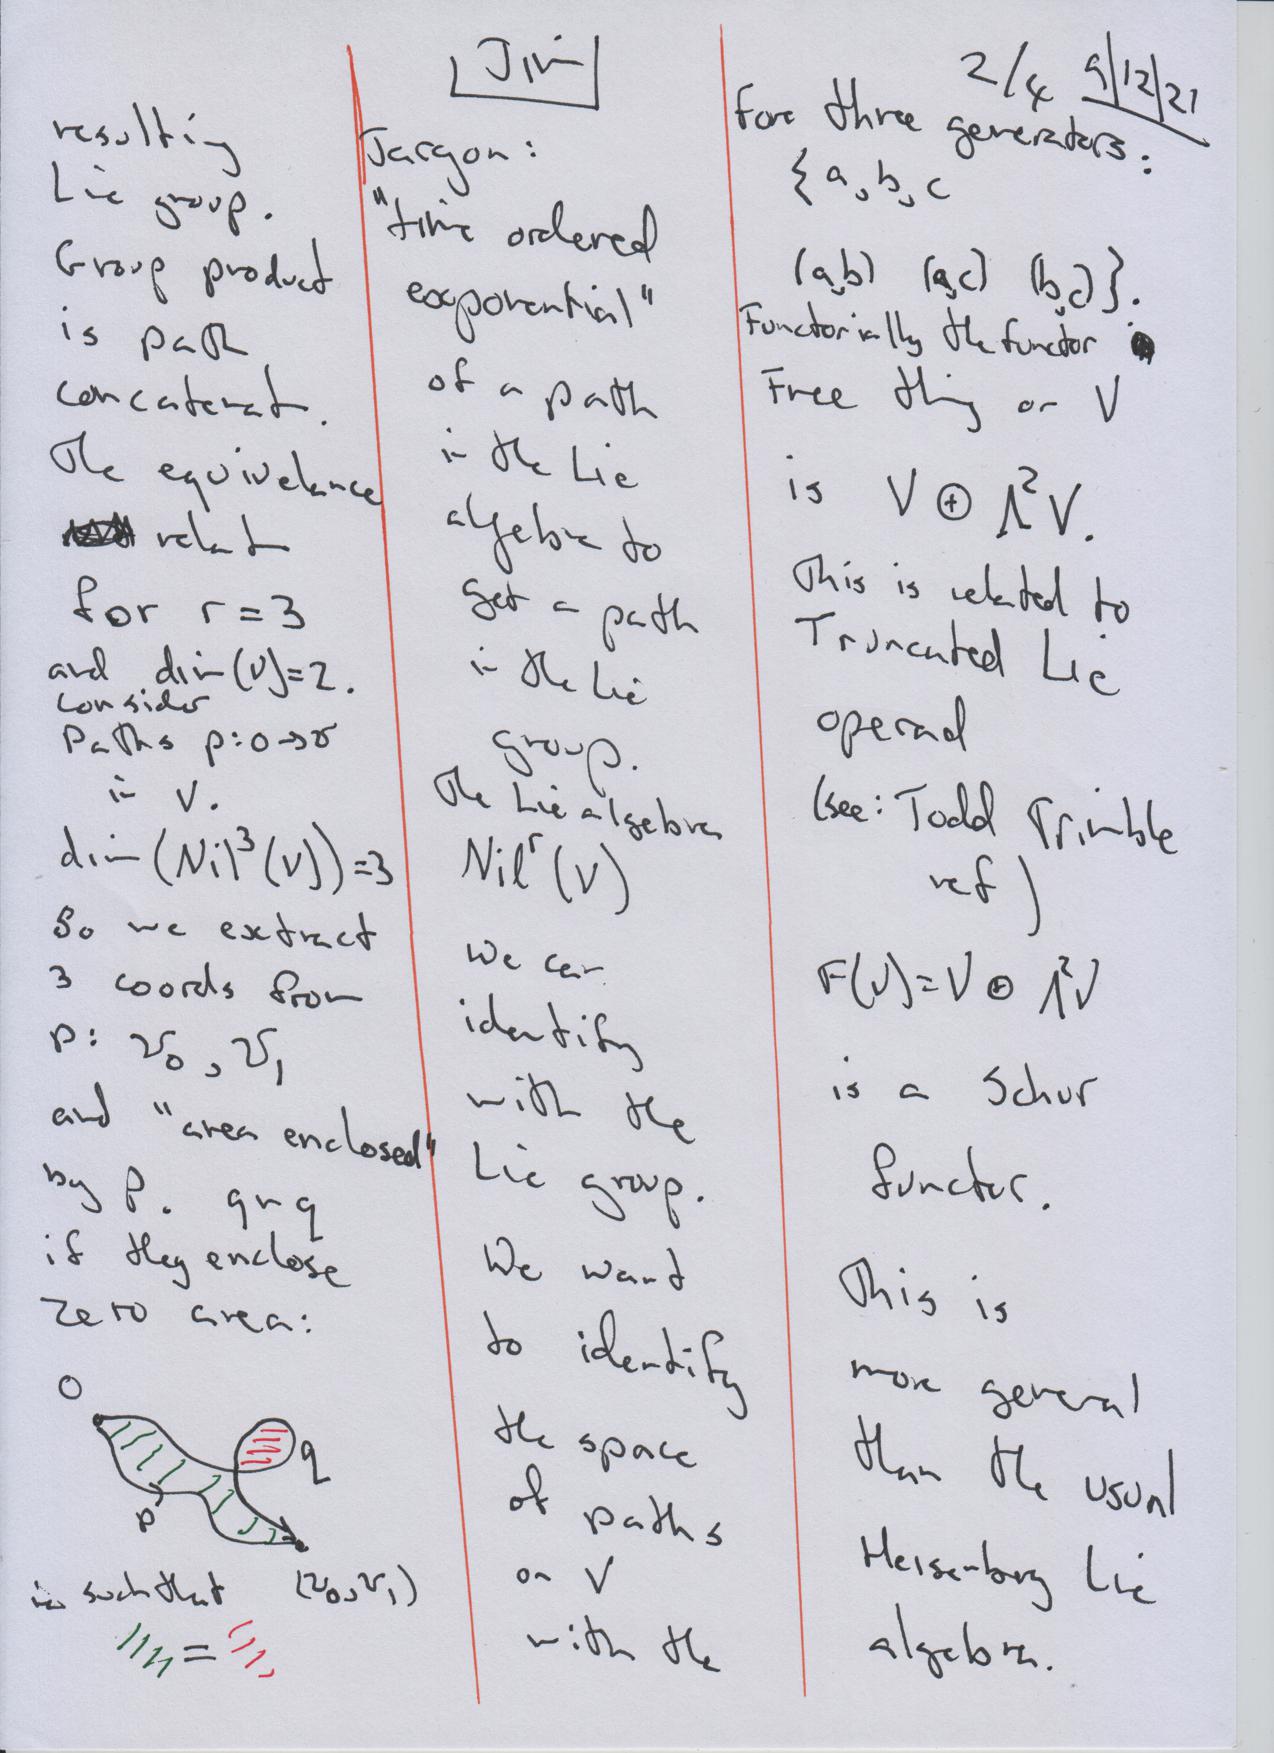 Jim
2/4 9/12/21
resulting
Lie group.
Group product
is path
concatenat.
The equivelance
relat
for r = 3
and dim(V)=2.
consider
Paths p:0→v
in V.
dim(Nil³(V))=3
So we extract
3 coords from
p: v₀, v₁
and "area enclosed"
by p. q~q
if they enclose
zero area:
0
q
p
is such that (v₀,v₁)
=
Jargon:
"time ordered
exponential"
of a path
in the Lie
algebra to
get a path
in the Lie
group.
The Lie algebra
Nilʳ(V)
we can
identify
with the
Lie group.
We want
to identify
the space
of paths
on V
with the
For three generators:
{a, b, c
(a,b) (a,c) (b,c)}.
Functorially the functor
Free thing on V
is V ⊕ Λ²V.
This is related to
Truncated Lie
operad
(see: Todd Trimble
ref)
F(V)=V ⊕ Λ²V
is a Schur
functor.
This is
more general
than the usual
Heisenberg Lie
algebra.